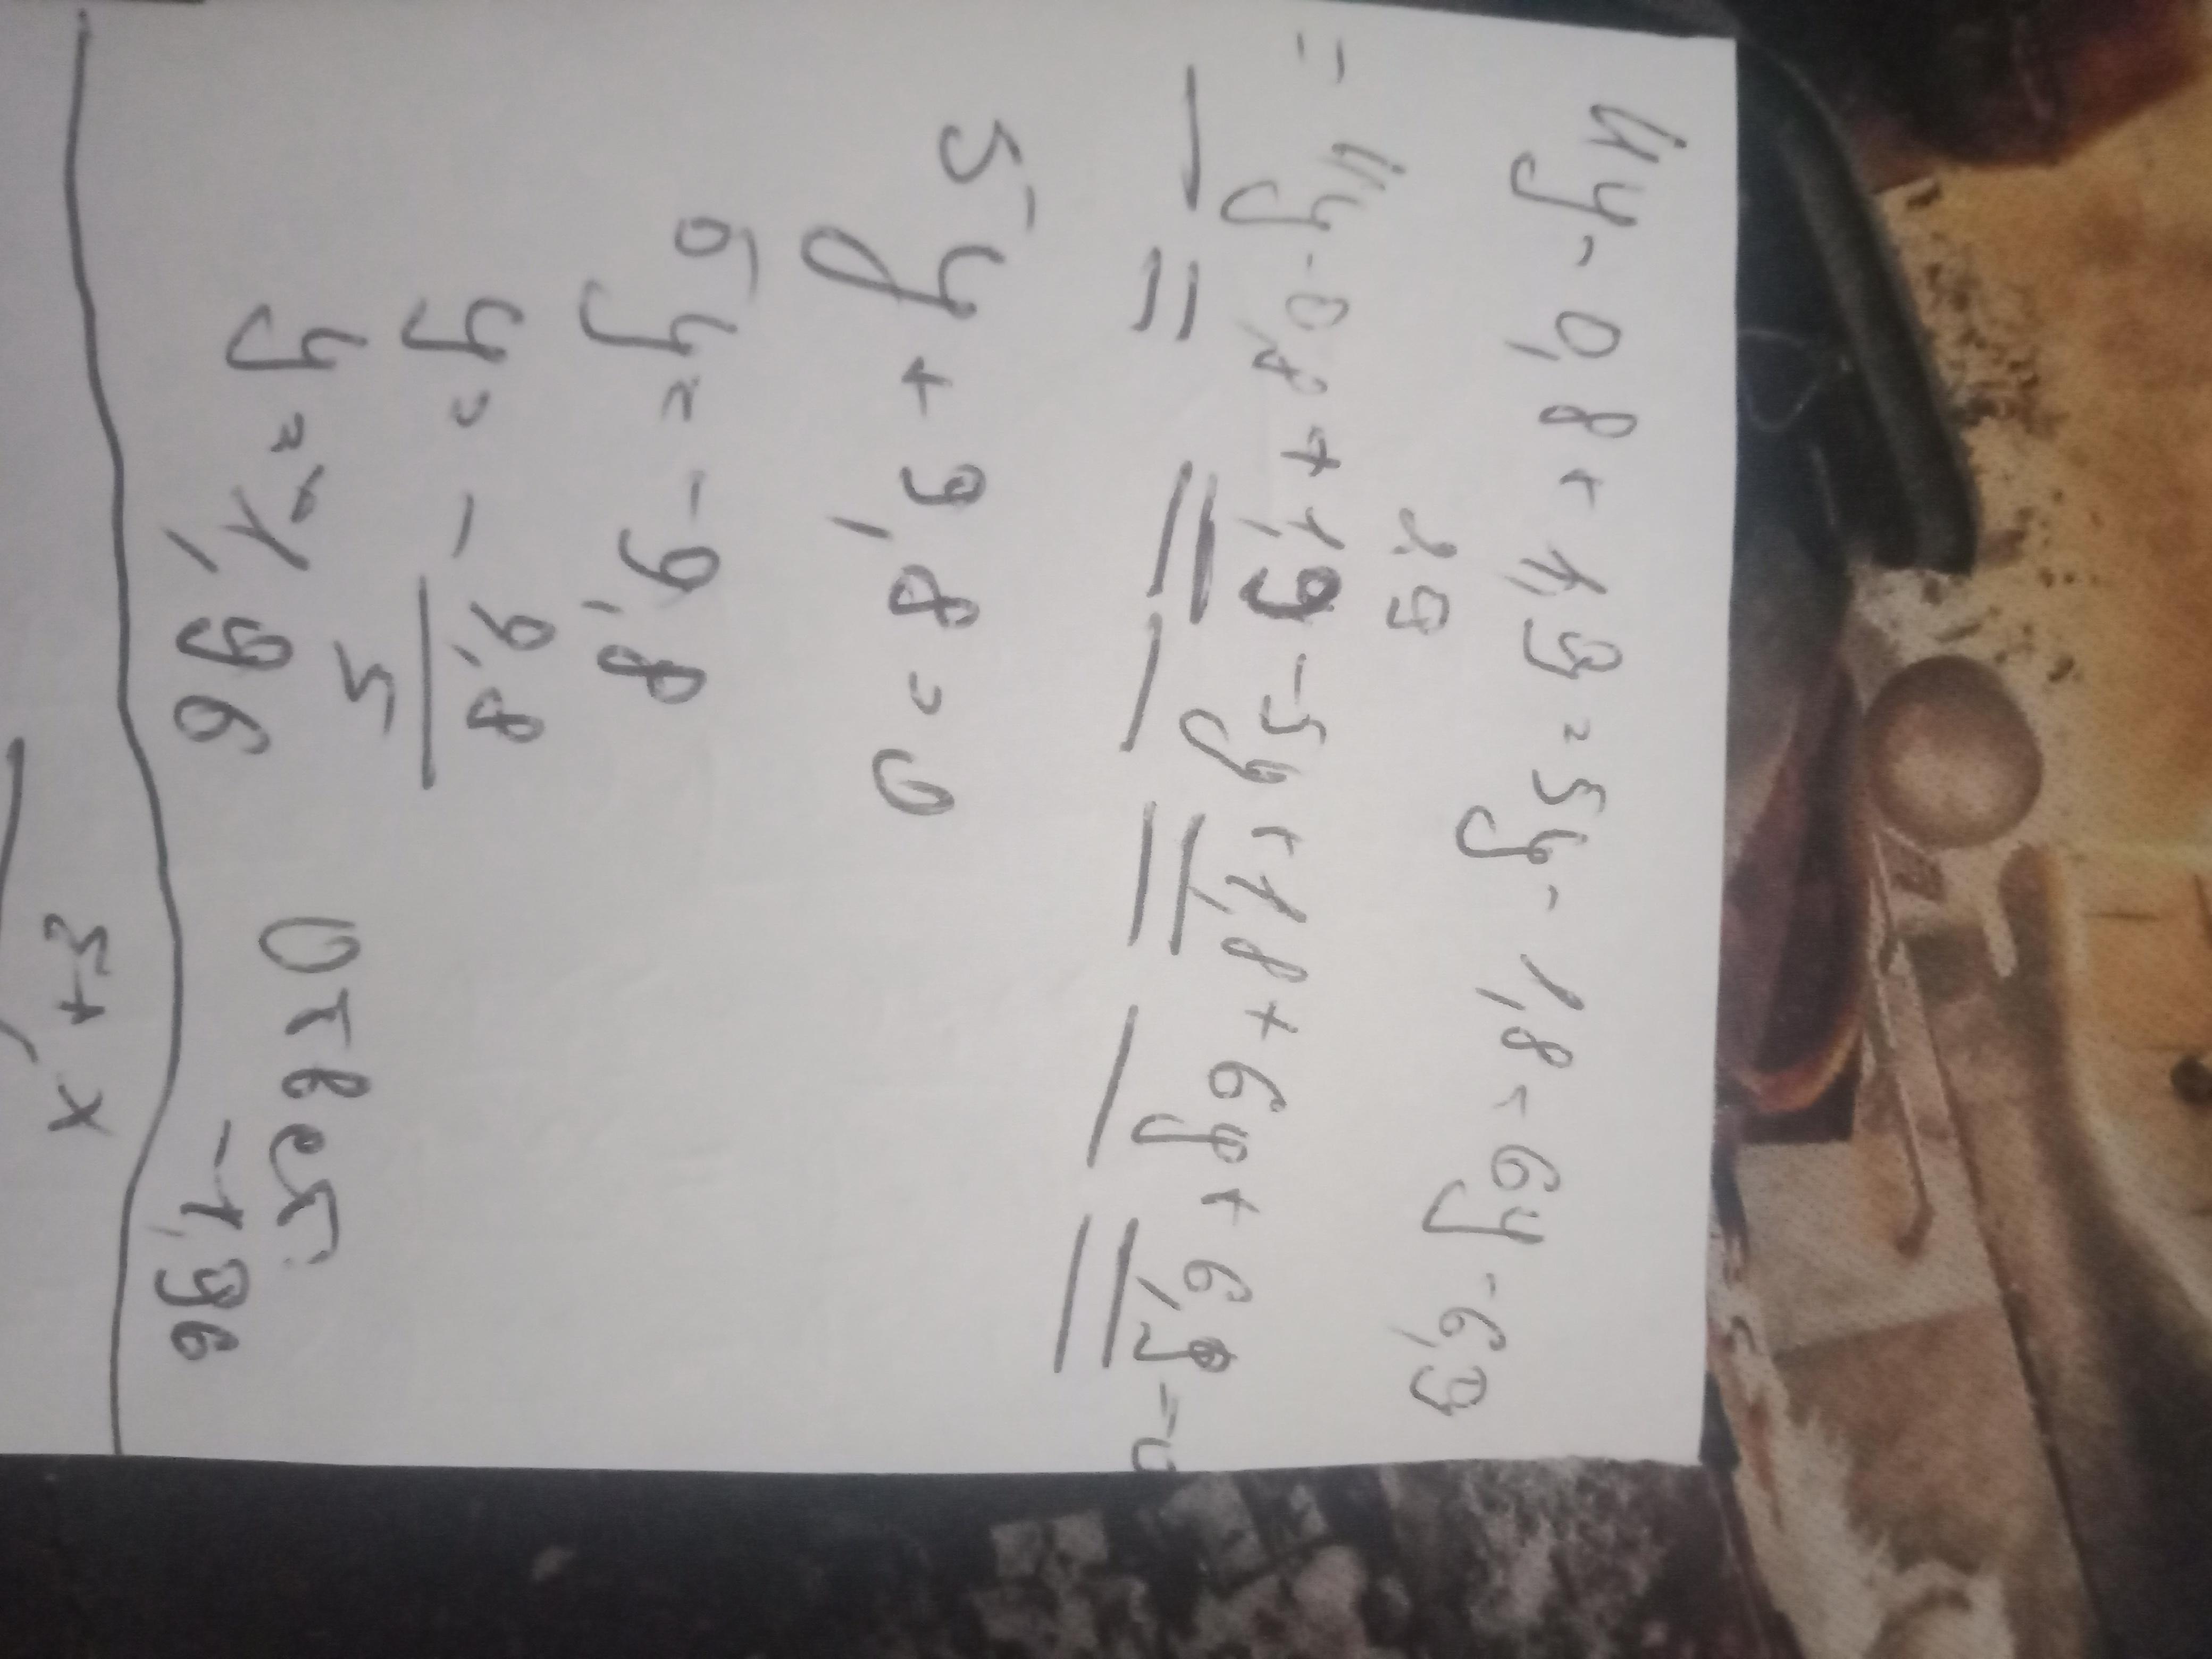 4y - 0,8 + 1,9 = 5y - 1,8 = 6y - 6,9
1,9
= 4y - 0,8 + 1,9 - 5y + 1,8 + 6y + 6,9 = 0
5y + 9,8 = 0
5y = - 9,8
y = - 9,8
5
y = -1,96 Ответ:
-1,96
3 + x